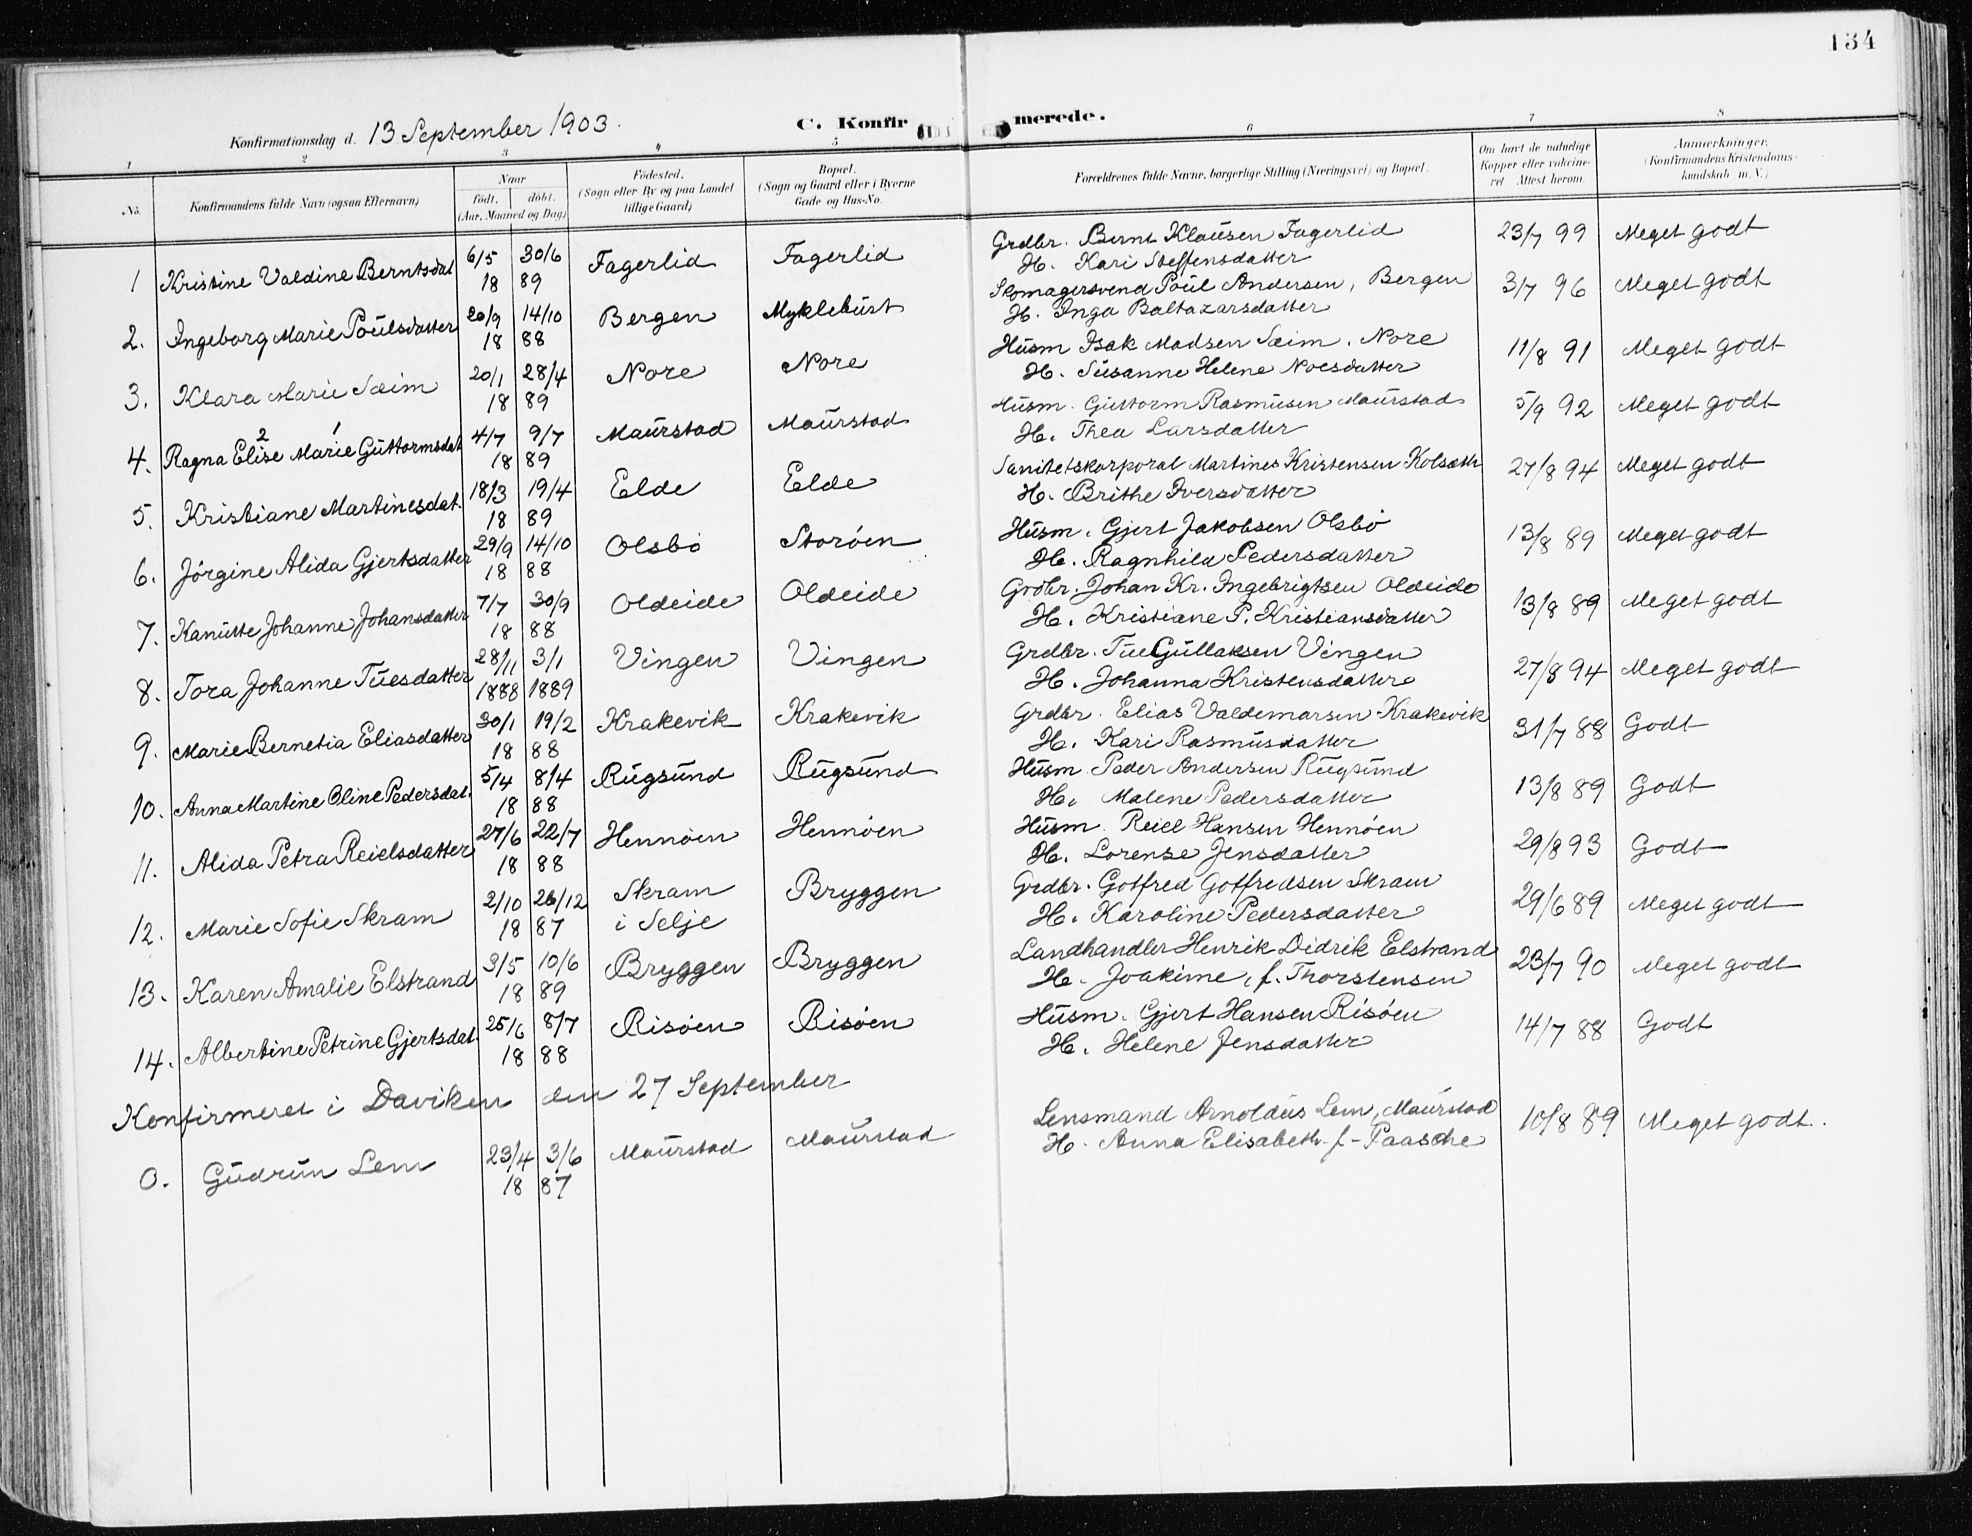 134
Konfirmationsdag d. 13 September 1903.
C. Konfirmerede.
1 2 3 4 5 6 7 8
No. Konfirmandens fulde Navn (ogsaa Efternavn) Naar født. døbt. (Aar, Maaned og Dag) Fødested. (Sogn eller By og paa Landet tillige Gaard) Bopæl. (Sogn og Gaard eller i Byerne Gade og Hus-No. Forældrenes fulde Navne, borgerlige Stilling (Næringsvei) og Bopæl. Om havt de naturlige Kopper eller vakcineret Attest herom. Anmærkninger, (Konfirmandens Kristendomskundskab m. V.)
1 Kristine Valdine Berntsdat 6/5 30/6 18 89 Fagerlid Fagerlid Grdbr. Bernt Klausen Fagerlid 23/7 99 Meget godt
H. Kari Steffensdatter
2. Ingeborg Marie Poulsdatter 20/9 14/10 18 88 Bergen Myklebust Skomagersvend Poul Andersen, Bergen 3/7 96 Meget godt
H. Inga Baltazarsdatter
3. Klara Marie Sæim 20/1 28/4 18 89 Nore Nore Husm Isak Madsen Sæim. Nore 11/8 91 Meget godt
H. Susanne Helene Noesdatter
4. Ragna Elise 2 Marie 1 Guttormsdat 4/7 9/7 18 89 Maurstad Maurstad Husm. Guttorm Rasmusen Maurstad 5/9 92 Meget godt
H. Thea Larsdatter
5. Kristiane Martinesdat. 18/3 19/4 18 89 Elde Elde Sanitetskorporal Martines Kristensen Kolsæth 27/8 94 Meget godt
H. Brithe Iversdatter
6. Jörgine Alida Gjertsdatter 29/9 14/10 18 88 Olsbö Storöen Husm. Gjert Jakobsen Olsbö 13/8 89 Meget godt
H. Ragnhild Pedersdatter
7. Kanutte Johanne Johansdatter 7/7 30/9 18 88 Oldeide Oldeide Grdbr. Johan Kr. Ingebrigtsen Oldeide 13/8 89 Meget godt
H. Kristiane P. Kristiansdatter
8. Tora Johanne Tuesdatter 28/11 3/1 1888 1889 Vingen Vingen Grdbr. Tue Gullaksen Vingen 27/8 94 Meget godt
H. Johanna Kristensdatter
9. Marie Bernetia Eliasdatter 30/1 19/2 18 88 Krakevik Krakevik Grdbr. Elias Valdemarsen Krakevik 31/7 88 Godt
H. Kari Rasmusdatter
10. Anna Martine Oline Pedersdat. 5/4 8/4 18 88 Rugsund Rugsund Husm Peder Andersen Rugsund 13/8 89 Godt
H. Malene Pedersdatter
11. Alida Petra Reielsdatter 27/6 22/7 18 88 Hennöen Hennöen Husm. Reiel Hansen Hennöen 29/8 93 Godt
H. Lorense Jensdatter
12. Marie Sofie Skram 2/10 26/12 18 87 Skram i Selje Bryggen Grdbr. Gotfred Gotfredsen Skram 29/6 89 Meget godt
H. Karoline Pedersdatter
13. Karen Amalie Elstrand 3/5 10/6 18 89 Bryggen Bryggen Landhandler Henrik Didrik Elstrand 23/7 90 Meget godt
H. Joakime, f. Thorstensen
14. Albertine Petrine Gjertsdat. 25/6 8/7 18 88 Risöen Risöen Husm. Gjert Hansen Risöen 14/7 88 Godt
H. Helene Jensdatter
Konfirmeret i Daviken den 27 September
0. Gudrun Lem 23/4 3/6 18 87 Maurstad Maurstad Lensmand Arnoldus Lem, Maurstad 10/8 89 Meget godt.
H. Anna Elisabeth f. Paasche